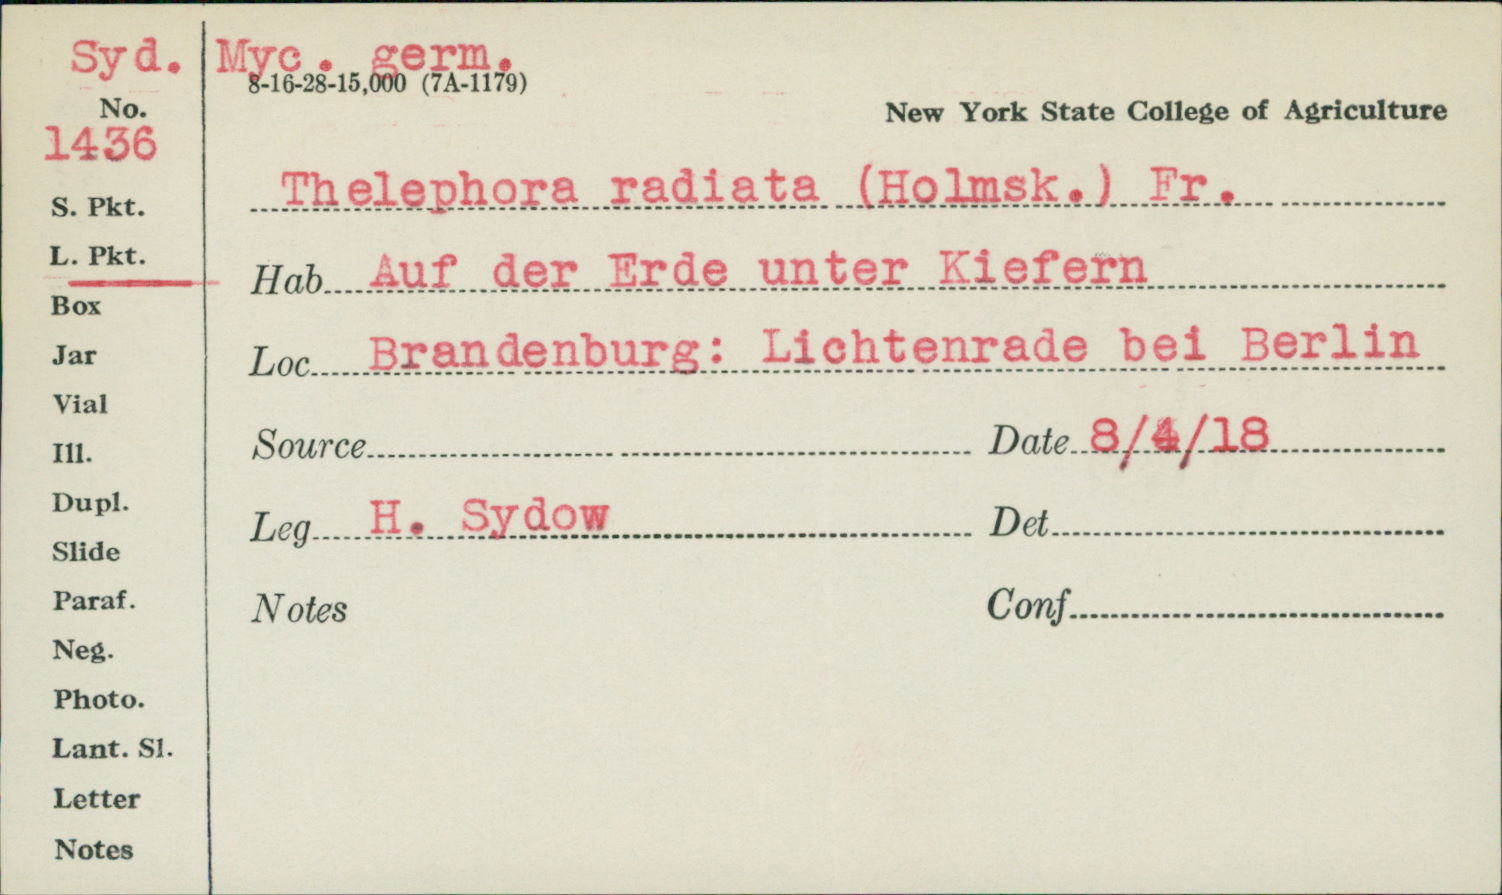 Syd. Myc. germ.
8-16-28-15,000 (7A-1179)
No.
New York State College of Agriculture
1436
Thelephora radiata (Holmsk.) Fr.
S. Pkt.
L. Pkt.
Hab Auf der Erde unter Kiefern
Box
Jar
Loc Brandenburg: Lichtenrade bei Berlin
Vial
Ill.
Source Date 8/4/18
Dupl.
Leg H. Sydow Det
Slide
Paraf.
Notes Conf
Neg.
Photo.
Lant. Sl.
Letter
Notes